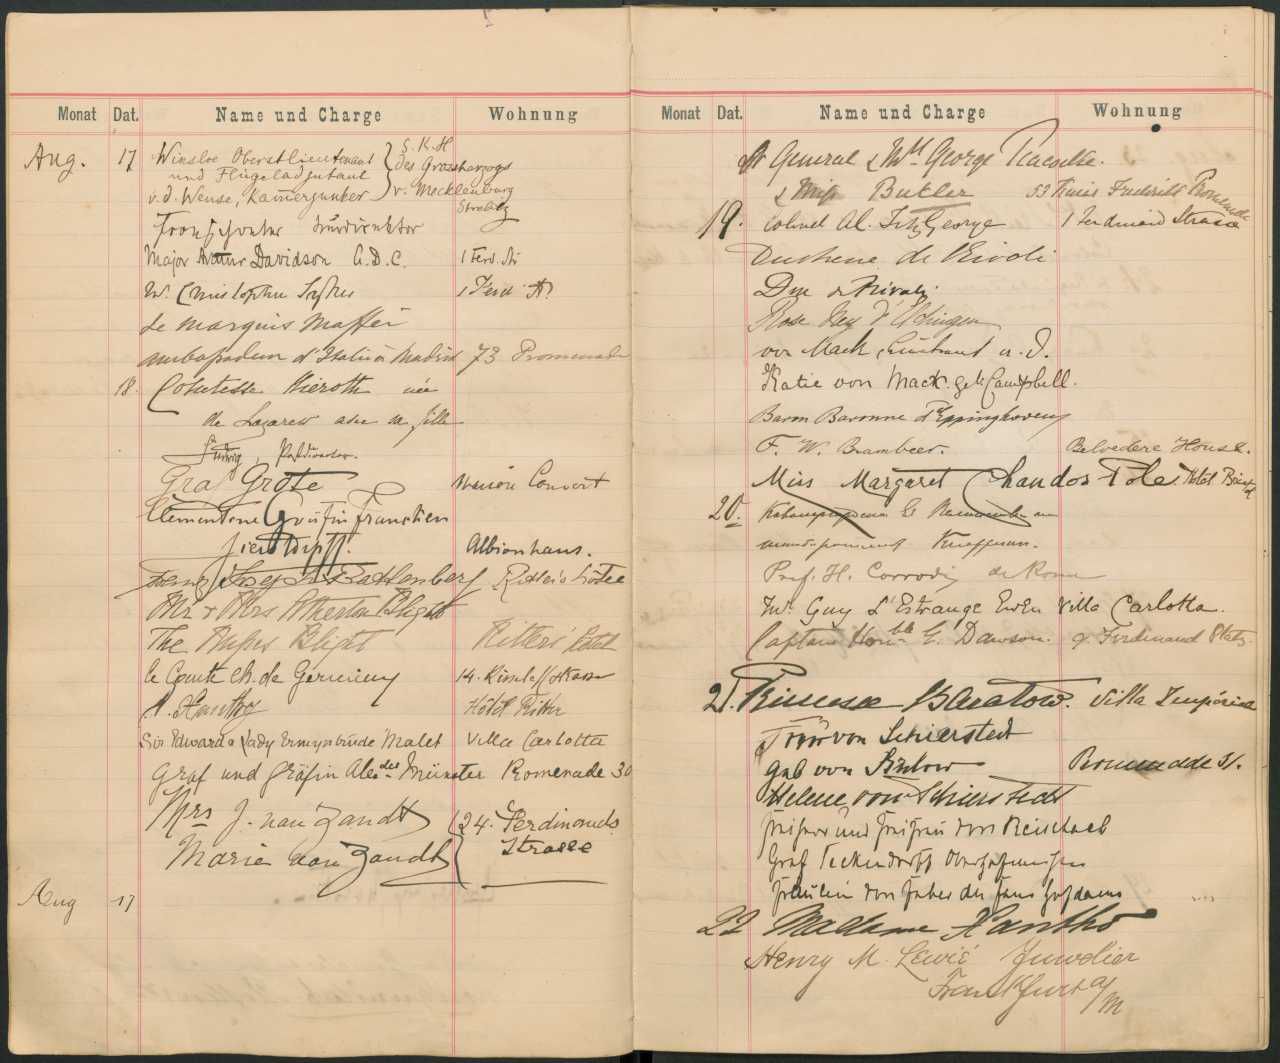 Monat Dat. Name und Charge Wohnung
Aug. 17 Winsloe Oberstlieutenant S. K. H
und Flügeladjutant des Grossherzogs
v. d. Wense, Kammerjunker v. Mecklenburg
Strelitz
Major Arthur Davidson A.D.C. 1 Ferd. Str
Mr. Christopher Sykes 1 Ferd. St.
Le marquis Maffei
ambassadeur d'Italie à Madrid 73 Promenade
18. Comtesse Hieroth née
de Lazarew avec sa fille
Ludwig, Postdirector.
Graf Grote Maison Convert
Clementine Gräfin Francken
Sierstorpff. Albionhaus.
Franz Josef v. Battenberg Ritter's Hotel
Mr & Mrs Atherton Blight
The Misses Blight Ritter's Hotel
le Comte Ch. de 14. Kisseleff Strasse
Hôtel Ritter
Sir Edward & Lady Ermyntrude Malet Villa Carlotta
Graf und Gräfin Alex.der Münster Promenade 30
Mrs J. van Zandt 24. Ferdinands
Marie van Zandt Strasse
Aug 17
Monat Dat. Name und Charge Wohnung
General & Mrs George
& Miss Butler 53 Kaiser Friedrich Promenade
19. Colonel Al. FitzGeorge 1 Ferdinand Strasse
Duchesse de Rivoli
Duc de Rivoli
Rose Ney d'Elchingen
von Mack, Lieutenant a. D.
Katie von Mack. geb Campbell.
Baron Baronne d'Eppinghoven
F. W. Brambeer. Belvedere House.
Miss Margaret Chandos Pole Hotel Bristol
20.
Prof. H. Corrodi de Rome
Mr. Guy L'Estrange Ewen Villa Carlotta.
Captain Honble E. Dawson. 9. Ferdinand Platz.
21. Princesse Baratow. Villa Impériale
Frau von Schierstedt
Gab von Bülow Promenade 31.
Helene von Schierstedt
Freiherr und Freifrau von Reischach
Graf Seckendorff Oberhofmeister
Fräulein von Faber du Faur Hofdame
22 Madame Xantho
Henry M. Lewié Juwelier
Frankfurt a/M